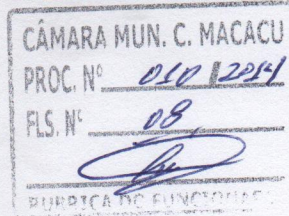 CÂMARA MUN. C. MACACU
PROC. Nº 010 /2014
FLS. Nº 08
RUBRICA DO FUNCIONÁRIO